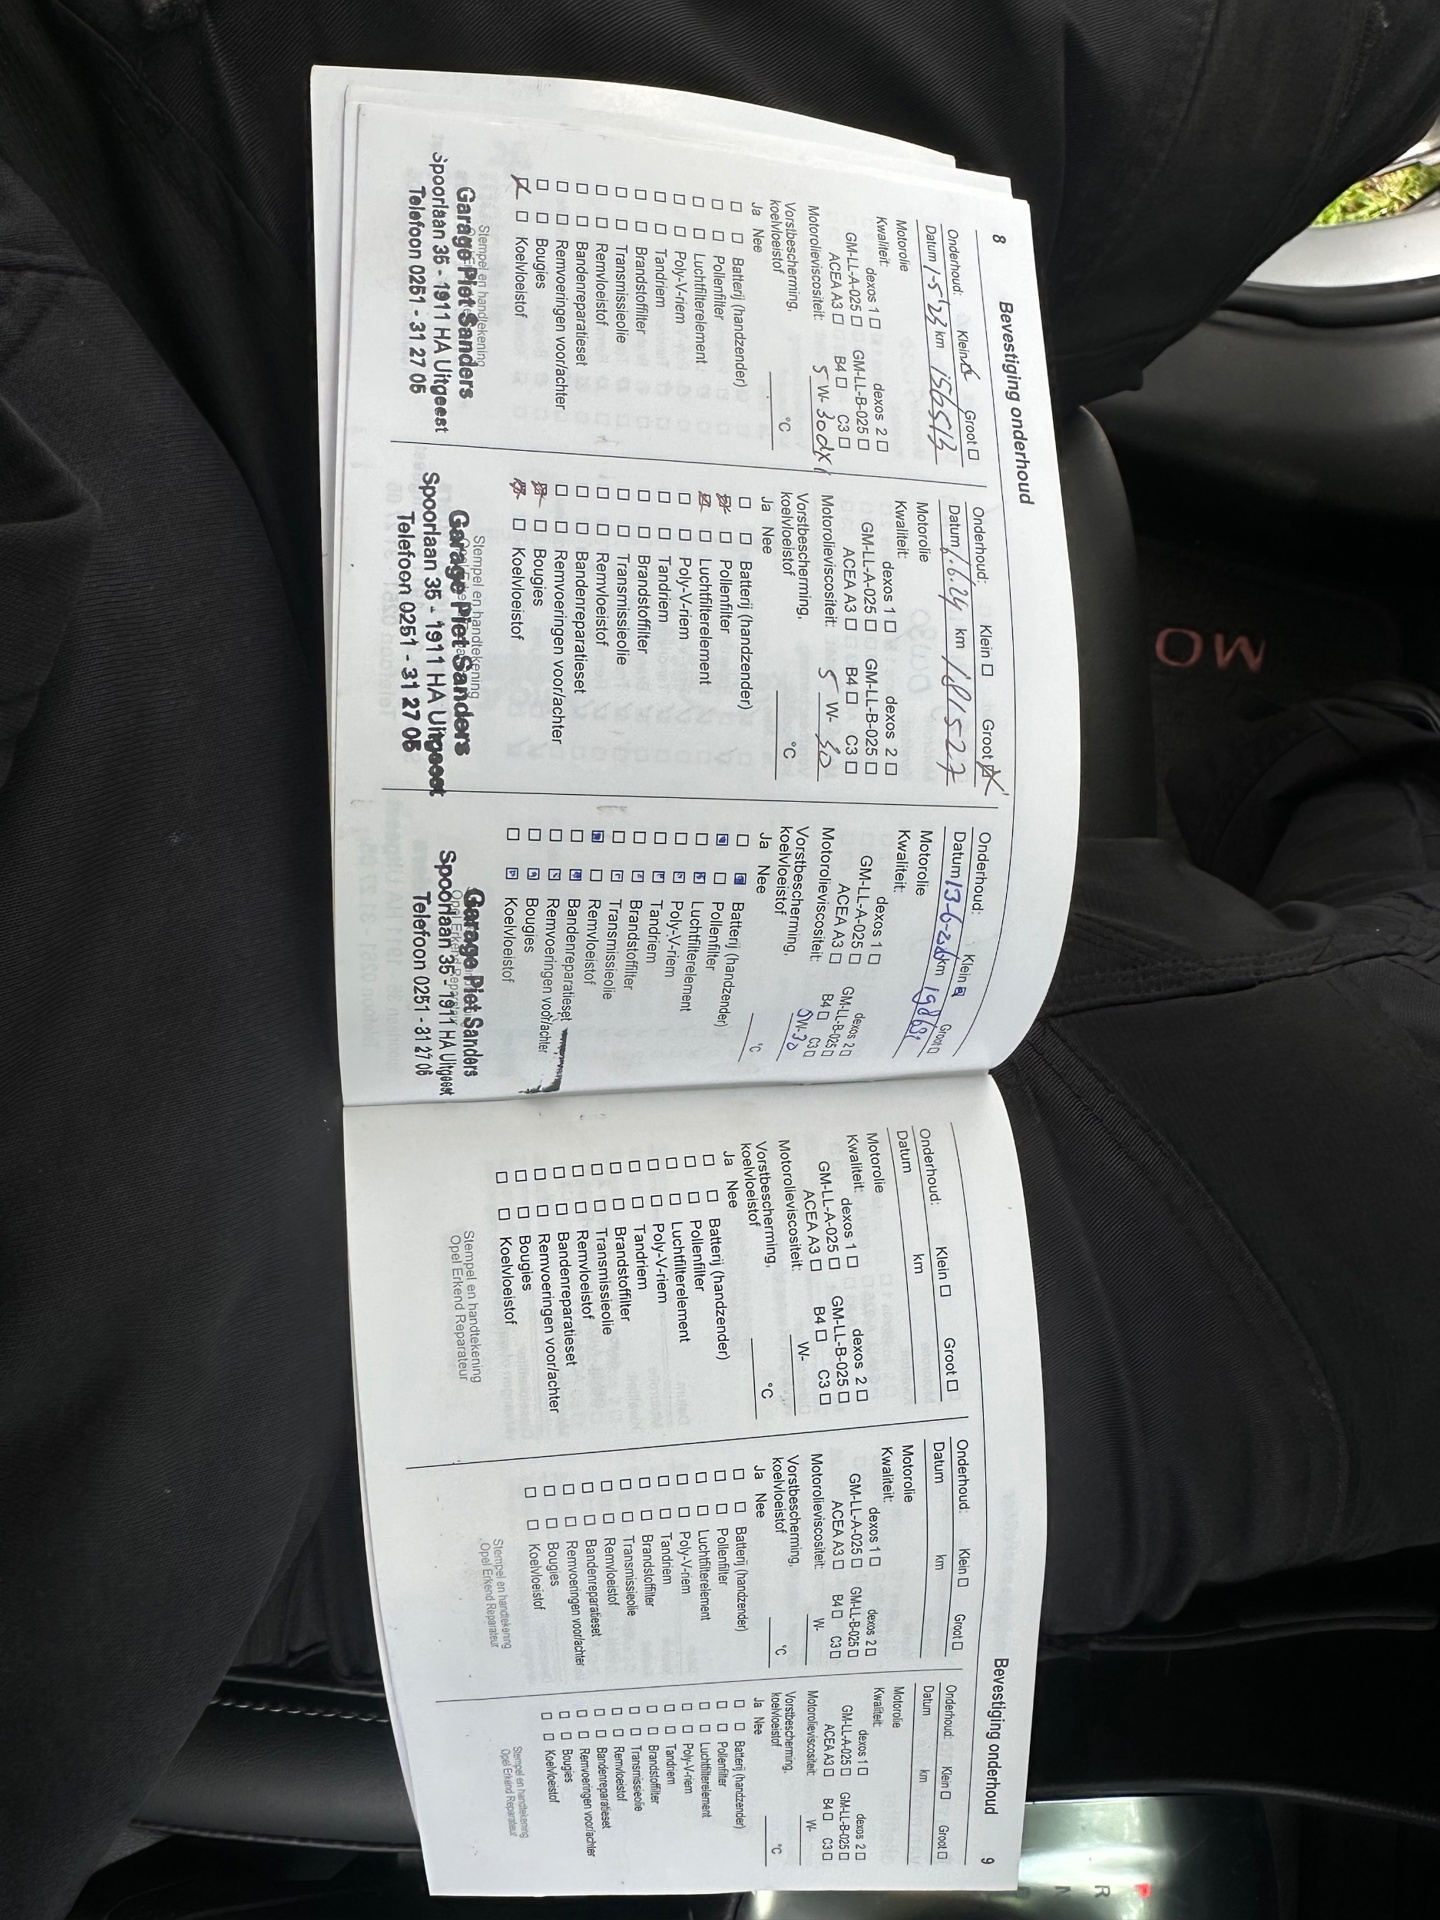 8 Bevestiging onderhoud
Onderhoud: Klein Groot
Datum 1-5-'23 km 156513
Motorolie
Kwaliteit: dexos 1 dexos 2
GM-LL-A-025 GM-LL-B-025
ACEA A3 B4 C3
Motorolieviscositeit: 5 W- 30
Vorstbescherming,
koelvloeistof °C
Ja Nee
Batterij (handzender)
Pollenfilter
Luchtfilterelement
Poly-V-riem
Tandriem
Brandstoffilter
Transmissieolie
Remvloeistof
Bandenreparatieset
Remvoeringen voor/achter
Bougies
Koelvloeistof
Stempel en handtekening
Garage Piet Sanders
Spoorlaan 35 - 1911 HA Uitgeest
Telefoon 0251 - 31 27 05
Onderhoud: Klein Groot
Datum km 181527
Motorolie
Kwaliteit: dexos 1 dexos 2
GM-LL-A-025 GM-LL-B-025
ACEA A3 B4 C3
Motorolieviscositeit: 5 W- 30
Vorstbescherming,
koelvloeistof °C
Ja Nee
Batterij (handzender)
Pollenfilter
Luchtfilterelement
Poly-V-riem
Tandriem
Brandstoffilter
Transmissieolie
Remvloeistof
Bandenreparatieset
Remvoeringen voor/achter
Bougies
Koelvloeistof
Stempel en handtekening
Garage Piet Sanders
Spoorlaan 35 - 1911 HA Uitgeest
Telefoon 0251 - 31 27 05
Onderhoud: Klein Groot
Datum km
Motorolie
Kwaliteit: dexos 1 dexos 2
GM-LL-A-025 GM-LL-B-025
ACEA A3 B4 C3
Motorolieviscositeit: W-30
Vorstbescherming,
koelvloeistof °C
Ja Nee
Batterij (handzender)
Pollenfilter
Luchtfilterelement
Poly-V-riem
Tandriem
Brandstoffilter
Transmissieolie
Remvloeistof
Bandenreparatieset
Remvoeringen voor/achter
Bougies
Koelvloeistof
Opel Erkend Reparateur
Garage Piet Sanders
Spoorlaan 35 - 1911 HA Uitgeest
Telefoon 0251 - 31 27 05
Bevestiging onderhoud 9
Onderhoud: Klein Groot
Datum km
Motorolie
Kwaliteit: dexos 1 dexos 2
GM-LL-A-025 GM-LL-B-025
ACEA A3 B4 C3
Motorolieviscositeit: W-
Vorstbescherming,
koelvloeistof °C
Ja Nee
Batterij (handzender)
Pollenfilter
Luchtfilterelement
Poly-V-riem
Tandriem
Brandstoffilter
Transmissieolie
Remvloeistof
Bandenreparatieset
Remvoeringen voor/achter
Bougies
Koelvloeistof
Stempel en handtekening
Opel Erkend Reparateur
Onderhoud: Klein Groot
Datum km
Motorolie
Kwaliteit: dexos 1 dexos 2
GM-LL-A-025 GM-LL-B-025
ACEA A3 B4 C3
Motorolieviscositeit: W-
Vorstbescherming,
koelvloeistof °C
Ja Nee
Batterij (handzender)
Pollenfilter
Luchtfilterelement
Poly-V-riem
Tandriem
Brandstoffilter
Transmissieolie
Remvloeistof
Bandenreparatieset
Remvoeringen voor/achter
Bougies
Koelvloeistof
Stempel en handtekening
Opel Erkend Reparateur
Onderhoud: Klein Groot
Datum km
Motorolie
Kwaliteit: dexos 1 dexos 2
GM-LL-A-025 GM-LL-B-025
ACEA A3 B4 C3
Motorolieviscositeit: W-
Vorstbescherming,
koelvloeistof °C
Ja Nee
Batterij (handzender)
Pollenfilter
Luchtfilterelement
Poly-V-riem
Tandriem
Brandstoffilter
Transmissieolie
Remvloeistof
Bandenreparatieset
Remvoeringen voor/achter
Bougies
Koelvloeistof
Stempel en handtekening
Opel Erkend Reparateur
MO
P
R
N